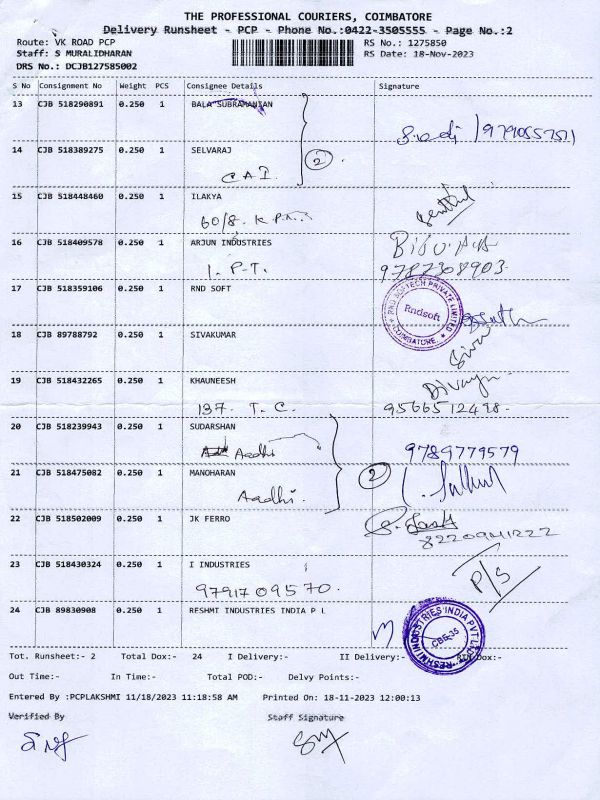 THE PROFESSIONAL COURIERS, COIMBATORE
Delivery Runsheet - PCP - Phone No.:0422-3505555 - Page No.:2
Route: VK ROAD PCP RS No.: 1275850
Staff: S MURALIDHARAN RS Date: 18-Nov-2023
DRS No.: DCJB127585002
S No Consignment No Weight PCS Consignee Details Signature
13 CJB 518290891 0.250 1 BALA SUBRAMANIAN
14 CJB 518389275 0.250 1 SELVARAJ
2
15 CJB 518448460 0.250 1 ILAKYA
60/8. K
16 CJB 518409578 0.250 1 ARJUN INDUSTRIES
1. P.T. 9787308903.
17 CJB 518359106 0.250 1 RND SOFT
RND SOFTECH PRIVATE LIMITED
Rndsoft
COIMBATORE.
18 CJB 89788792 0.250 1 SIVAKUMAR
Siva
19 CJB 518432265 0.250 1 KHAUNEESH
137. T. C. 9566512498.
20 CJB 518239943 0.250 1 SUDARSHAN
Aadhi 9789779579
21 CJB 518475082 0.250 1 MANOHARAN
Aadhi. 2
22 CJB 518502009 0.250 1 JK FERRO
23 CJB 518430324 0.250 1 I INDUSTRIES
9791709570. P/S
24 CJB 89830908 0.250 1 RESHMI INDUSTRIES INDIA P L
RESHMI INDUSTRIES INDIA PVT LTD
CBE-35
Tot. Runsheet:- 2 Total Dox:- 24 I Delivery:- II Delivery:- Dox:-
Out Time:- In Time:- Total POD:- Delvy Points:-
Entered By :PCPLAKSHMI 11/18/2023 11:18:58 AM Printed On: 18-11-2023 12:00:13
Verified By Staff Signature